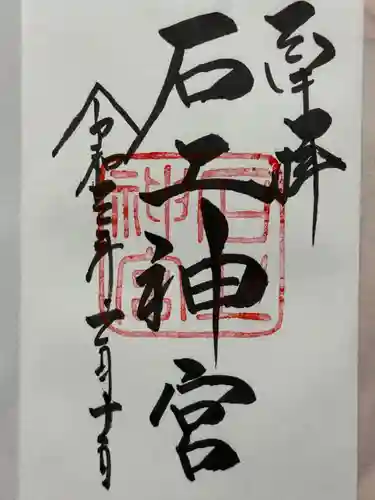 奉拝
石工神宮
令和三年二月十日
石工神宮